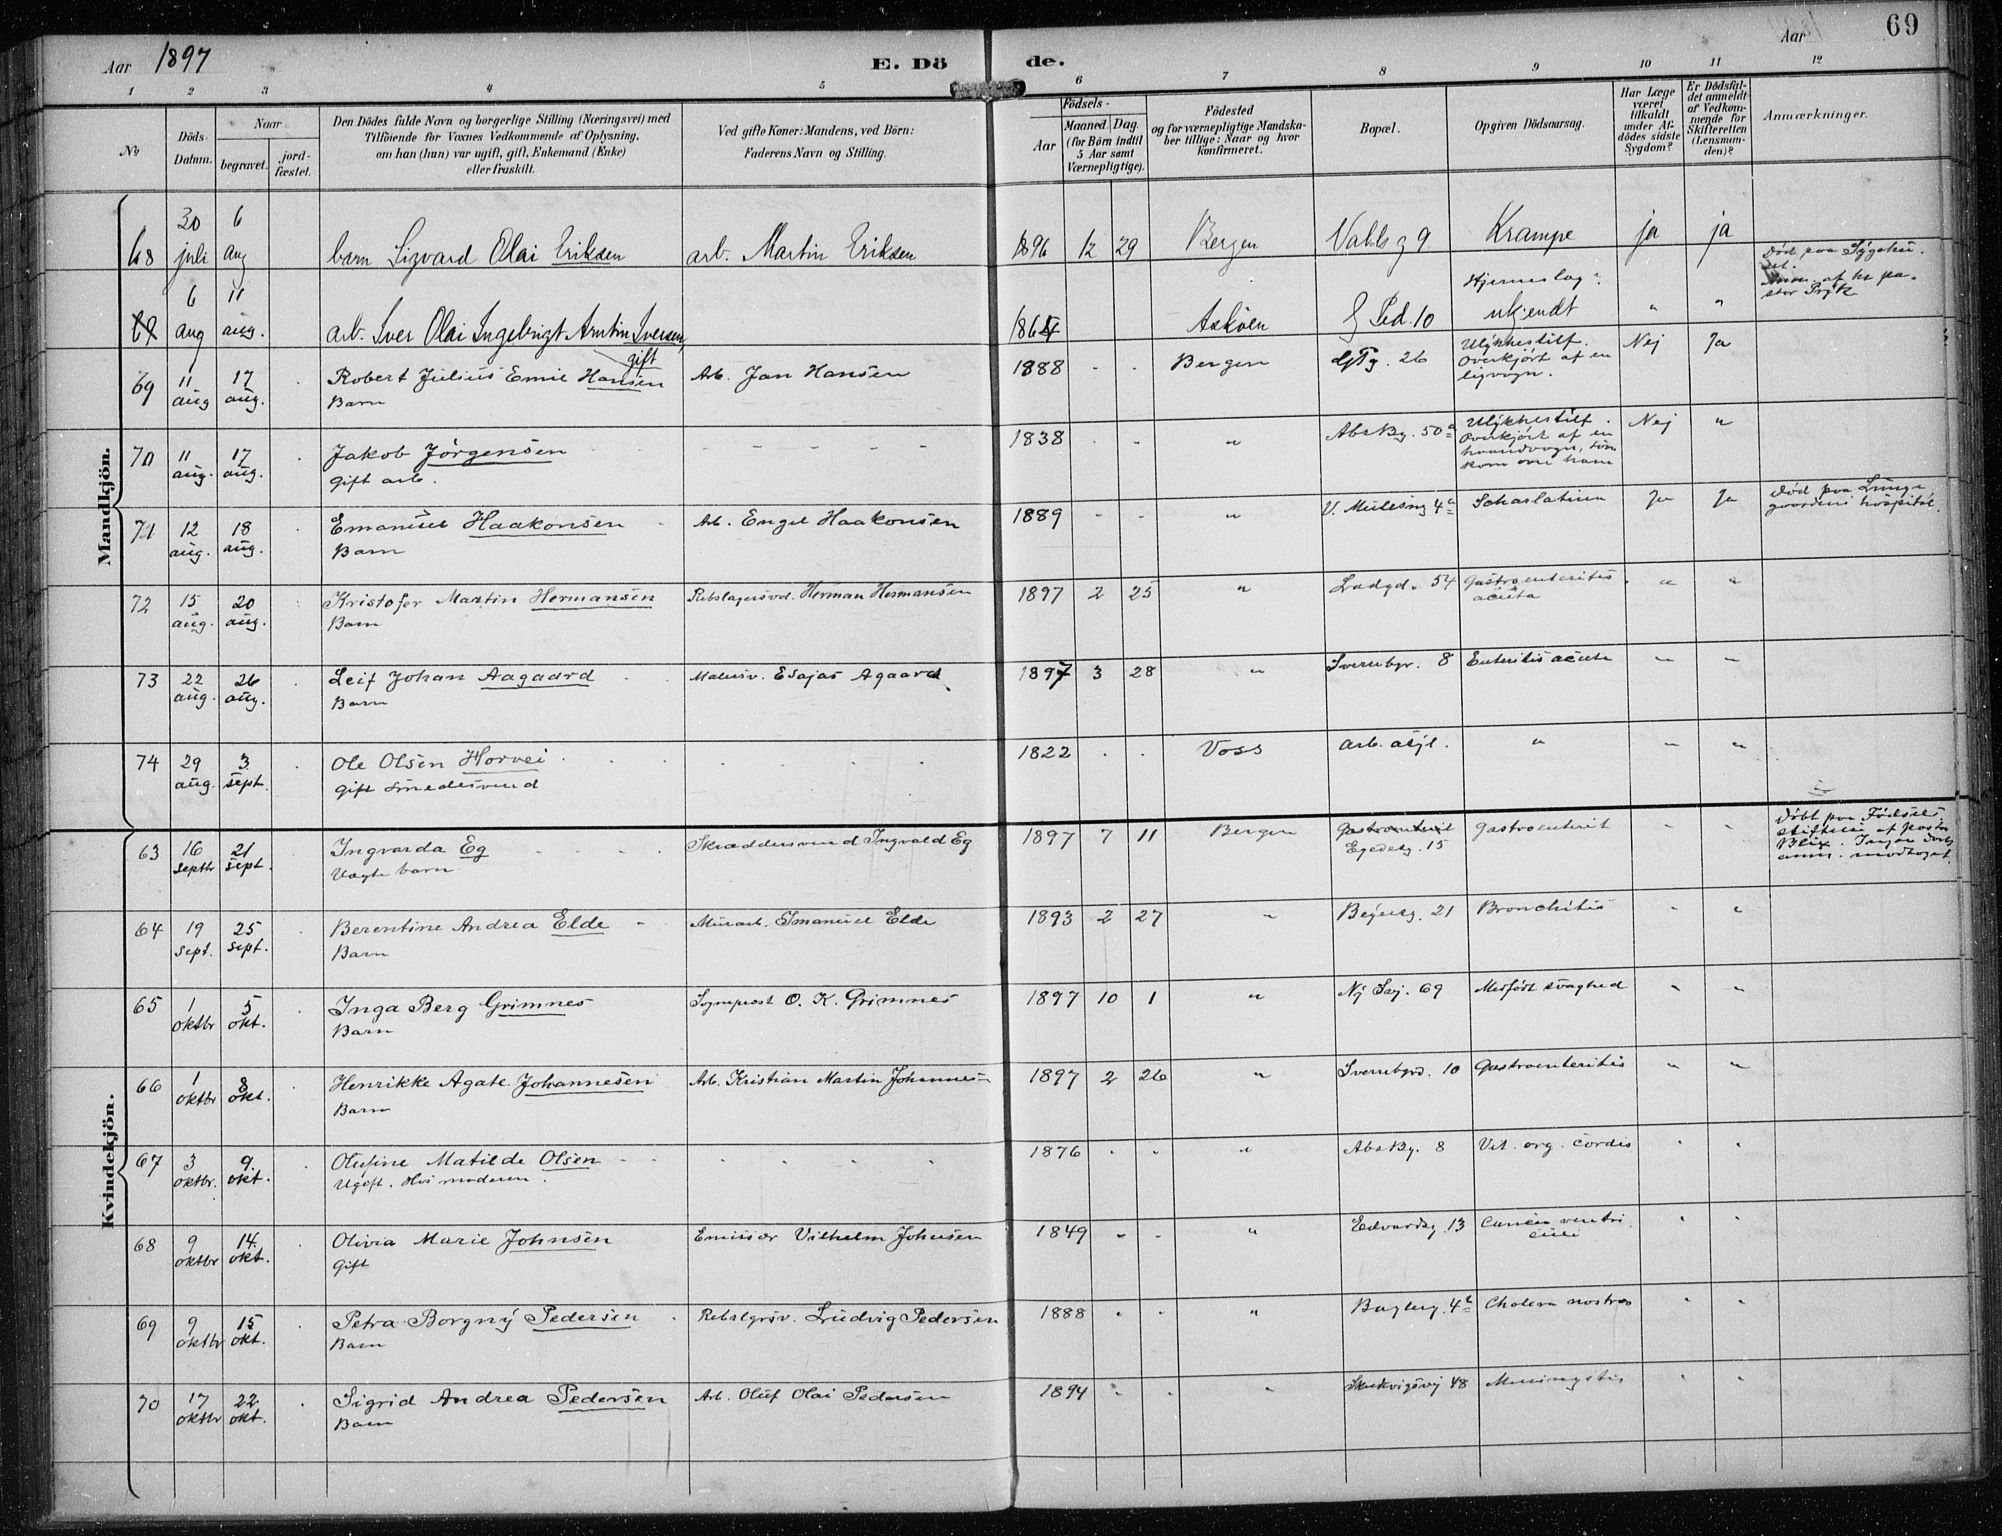 Aar 1897
E. Dö de.
Aar
69
1 2 3 4 5 6 7 8 9 10 11 12
No
Döds-Datum.
Naar
begravet.
jord-fæstet.
Den Dödes fulde Navn og borgerlige Stilling (Næringsvei) med
Tilföiende for Voxnes Vedkommende af Oplysning,
om han (hun) var ugift, gift, Enkemand (Enke)
eller fraskilt.
Ved gifte Koner: Mandens, ved Börn:
Faderens Navn og Stilling.
Födsels-
Aar
Maaned. Dag.
(for Börn indtil
5 Aar samt
Værnepligtige).
Födested
og for værnepligtige Mandska-
ber tillige: Naar og hvor
konfirmeret.
Bopæl.
Opgiven Dödsaarsag.
Har Læge
været
tilkaldt
under Af-
dödes sidste
Sygdom?
Er Dödsfal-
det anmeldt
af Vedkom-
mende for
Skifteretten
(Lensman-
den)?
Anmærkninger.
Mandkjön.
68 30 juli 6 aug barn Sigvard Olai Eriksen arb. Martin Eriksen 1896 12 29 Bergen Krampe ja ja
Död paa Sygehu-
set.
6 aug 11 aug. arb. Iver Olai Ingebrigt Iversen, gift Askøen 10 Hjerneslag? ukjendt " "
69 11 aug 17 aug. Robert Julius Emil Hansen Arb. Jan Hansen 1888 . . Bergen 26 Ulykkestilf. Overkjört af en ligvogn. Nej Ja
Barn
70 11 aug. 17 aug. Jakob Jörgensen - - - - 1838 . . " 50 a Ulykkestilf. Overkjört af en haandvogn, som kom over ham Nej "
Gift arb.
71 12 aug. 18 aug. Emanuel Haakonsen Arb. Engel Haakonsen 1889 - - " V. Mulesmg 4 a Scharlatina Ja Ja Död paa Lunge-
gaardens hospital.
Barn
72 15 aug. 20 aug. Kristofer Martin Hermansen Rebslagersvd. Herman Hermansen 1897 2 25 " Ladgd. 54 Gastroenteritis acuta " "
Barn
73 22 aug. 26 aug. Leif Johan Aagaard Malersv. Esajas Agaard 1897 3 28 " Sverrebgr. 8 Enteritis acuta " "
Barn
74 29 aug. 3 sept. Ole Olsen Horvei . . . . 1822 . . Voss arb. asyl. " " "
Gift Smedesvend
Kvindekjön.
63 16 septbr 21 sept. Ingvarda Eg Skræddersvend Ingvald Eg 1897 7 11 Bergen Gastroenterit Egedesg. 15 Gastroenterit " "
Uægte barn
Döbt paa Födsels-
stiftelse af pastor
Blix. Ingen
anm. modtaget.
64 19 sept. 25 sept. Berentine Andrea Elde Murarb. Emanuel Elde 1893 2 27 " 21 Bronchitis " "
Barn
65 1 oktbr 5 okt. Inga Berg Grimnes Sogneprest O. K. Grimnes 1897 10 1 " 69 Medfödt svaghed " "
Barn
66 1 oktbr 8 okt. Henrikke Agate Johannesen Arb. Kristian Martin Johannes- 1897 2 26 " Sverrebgrd. 10 Gastroenteritis " "
Barn
67 3 oktbr. 9 okt. Olufine Matilde Olsen . . . . 1876 . . " Absby. 8 Vit. org. cordis " "
Ugift. Hos moderen.
68 9 oktbr 14 okt. Olivia Marie Johnsen Emissær Vilhelm Johnsen 1849 - - " Edvardsg. 13 Cancer ventri-
culi " "
Gift
69 9 oktbr 15 okt. Petra Borgny Pedersen Rebslgrsv. Ludvig Pedersen 1888 . . " 4 b Cholera nostras " "
Barn
70 17 oktbr 22 okt. Sigrid Andrea Pedersen Arb. Oluf Olai Pedersen 1894 . . " 48 Meningitis " "
Barn